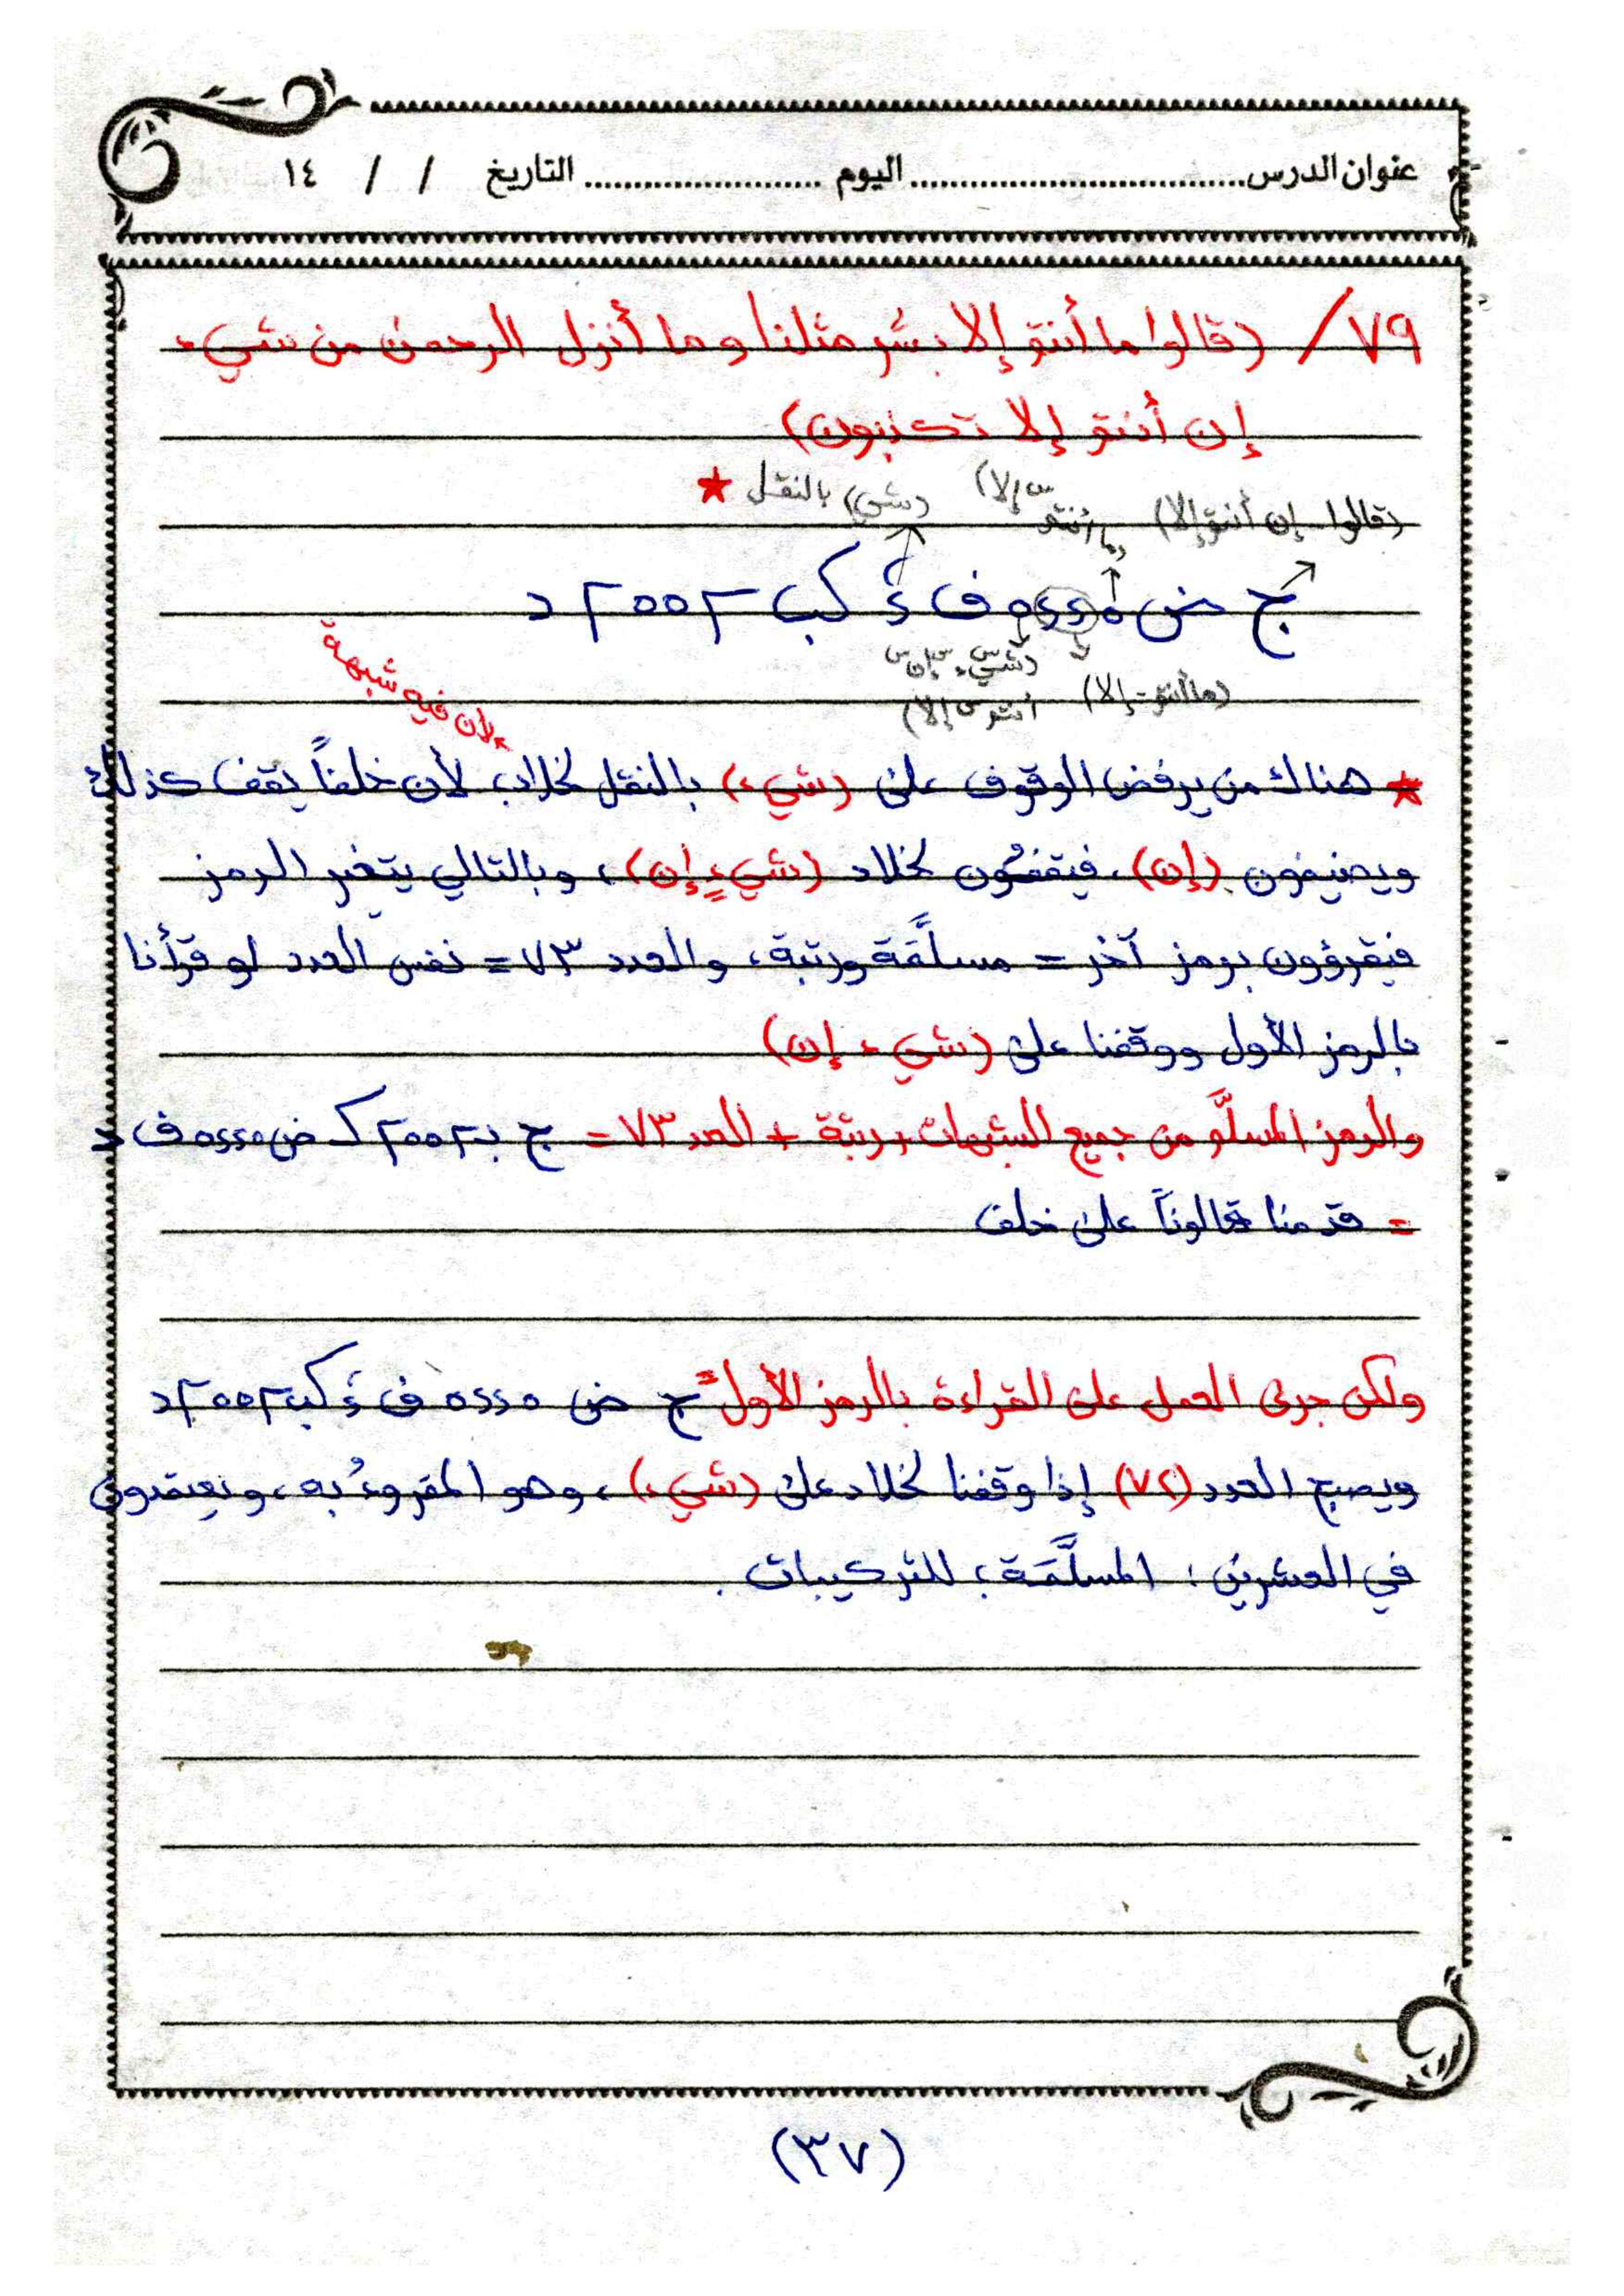 عنوان الدرس.................................اليوم.......................التاريخ / / ١٤
٧٩/ (قالوا ما أنتم إلا بشر مثلنا وما أنزل الرحمن من شيء
إن أنتم إلا تكذبون)
(قالوا - إن أنتم إلا) (ما أنتم إلا) (شي) بالنقل ★
ج ض ف كب د
(ما أنتم - إلا) (شيء إن
أنتم إلا)
لأن فيه شبهة
★ هناك من يرفض الوقوف على (شيء) بالنقل لخلاد، لأن خلفاً يقف كذلك
ويضيفون (إن)، فيقفون لخلاد (شيءٍ إن)، وبالتالي يتغير الرمز
فيقرؤون برمز آخر = مسلَّمة ورتبة، والعدد ٧٣ = نفس العدد لو قرأنا
بالرمز الأول ووقفنا على (شيء إن)
والرمز المسلَّم من جميع الشبهات ورتبة + العدد ٧٣ =
= قدمنا قالوناً على خلف
ولكن جرى العمل على القراءة بالرمز الأول =
ويصبح العدد (٧٢) إذا وقفنا لخلاد على (شيء)، وهو المقروءُ به، ويعتمدون
في العشرين: المسلَّمة، للتركيبات.
(٣٧)